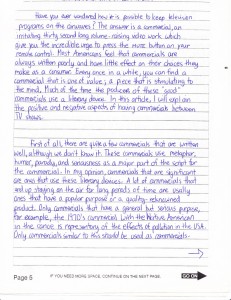 Have you ever wondered how it is possible to keep television
programs on the airwaves? The answer is a commercial, an
irritating thirty second long volume-raising video work, which
give you the incredible urge to press the mute button on your
remote control. Most Americans feel that commercials are
always written poorly and have little effect on their choices they
make as a consumer. Every once in a while, you can find a
commercial that is one of value; a piece that is stimulating to
the mind. Much of the time the producers of these "good"
commercials use a literary device. In this article, I will explain
the positive and negative aspects of having commercials between
TV shows.
First of all, there are quite a few commercials that are written
well, although we don't know it. These commercials use metaphor,
humor, parody, and seriousness as a major part of the script for
the commercial. In my opinion, commercials that are significant
are ones that use these literary devices. A lot of commercials that
end up staying on the air for long periods of time are usually
ones that have a popular purpose or a quality-renowned
product. Only commercials that have a general but serious purpose,
for example, the 1970's commercial with the Native American
in the canoe is representory of the effects of pollution in the USA.
Only commercials similar to this should be used as commercials.
Page 5
IF YOU NEED MORE SPACE, CONTINUE ON THE NEXT PAGE.
GO ON